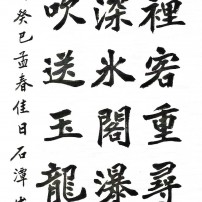 裡客重尋
深氷閣瀑
吹送玉龍
癸巳孟春佳日石潭